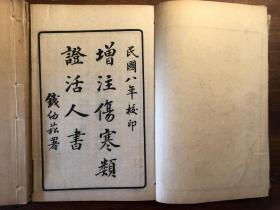 民國八年校印
增注傷寒類
證活人書
錢伯菘署